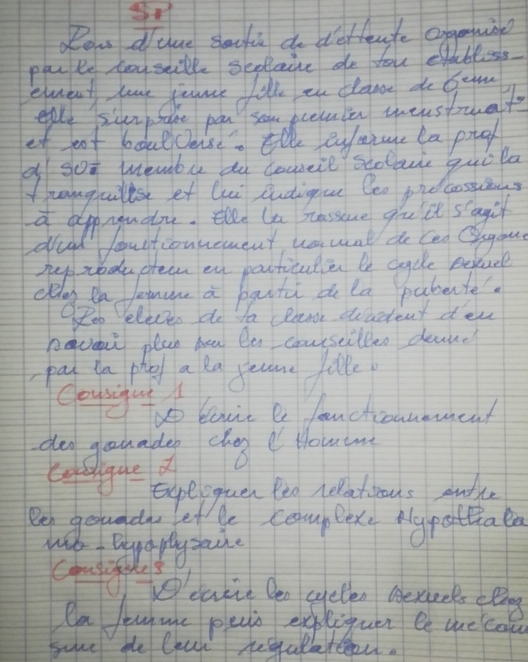 SP
Lors d'une sortie de d'ettente Organisé
par le conseille scolaire de ton établiss-
ement, une jeune fille en classe de 6eme
elle surprise par son premier menstruat-
et est boulversé. Elle informe la prof
d' SVT membre du conseil scolaire qui la
tranquillise et lui indique les procossions
à apprendre. Elle la rassure qu'il s'agit
d'un fonctionnement normal de ces Organes
reproducteur en particulier le cycle sexuel
chez la femme à partir de la puberté.
Les eleves de ta classe decident d'en
savoir plus sur les conseilles donné
par la prof a la jeune fille.
Consigne 1
D'écrire le fonctionnement
des gonades chez l'Homme
Consigne 2
Expliquer les relations entre
les gonades et le complexe Hypothala
mo-hypophysaire
Consigne 3
D'écrire les cycles sexuels chez
la femme puis expliquer le mécani
sme de leur régulation.